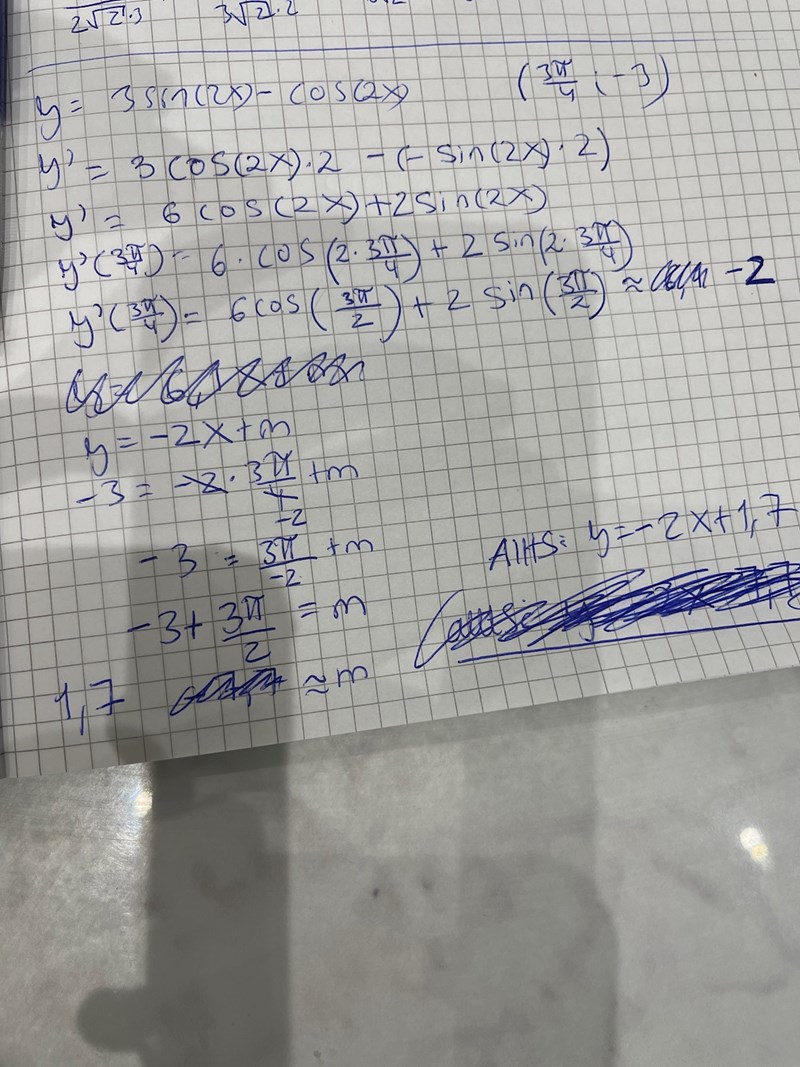 2√2·3 3√2·2
y = 3 sin(2x) - cos(2x) (3π/4 ; -3)
y' = 3 cos(2x)·2 - (- sin(2x)·2)
y' = 6 cos(2x) + 2 sin(2x)
y'(3π/4) = 6 · cos(2·3π/4) + 2 sin(2·3π/4)
y'(3π/4) = 6 cos(3π/2) + 2 sin(3π/2) ≈ -2
y = -2x + m
-3 = -2 · 3π/4 + m
-2
-3 = 3π/-2 + m
AIHS: y = -2x + 1,7
-3 + 3π/2 = m
1,7 ≈ m